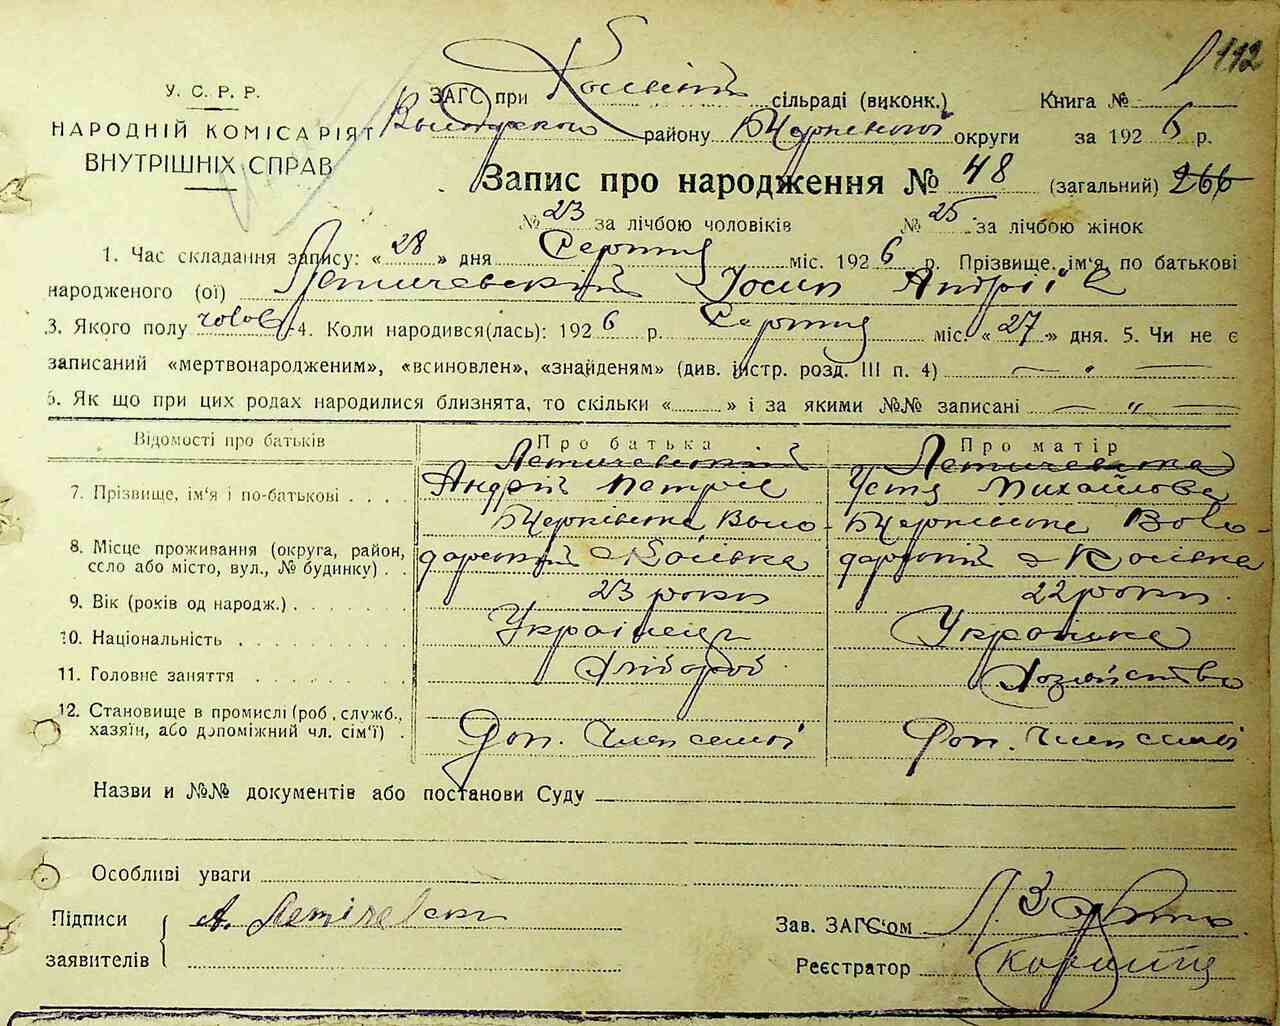 112
У. С. Р. Р.
НАРОДНІЙ КОМІСАРІЯТ
ВНУТРІШНІХ СПРАВ
ЗАГС при сільраді (виконк.) Книга №
району округи за 1926 р.
Запис про народження № 48 (загальний) 266
№ 23 за лічбою чоловіків № 25 за лічбою жінок
1. Час складання запису: «28» дня Серпня міс. 1926 р. Прізвище, ім'я по батькові
народженого (ої) Летичевський Йосип Андріїв
3. Якого полу чолов 4. Коли народився(лась): 1926 р. Серпня міс. «27» дня. 5. Чи не є
записаний «мертвонародженим», «всиновлен», «знайденям» (див. інстр. розд. III п. 4) — " —
6. Як що при цих родах народилися близнята, то скільки « » і за якими №№ записані — " —
Відомості про батьків Про батька Про матір
Летичевський Летичевська
7. Прізвище, ім'я і по-батькові Андрій Петрів Устя Михайлова
8. Місце проживання (округа, район, село або місто, вул., № будинку) Б Церківська Воло-дарський Б Церківська Воло-дарський
9. Вік (років од народж.) 23 роки 22 роки
10. Національність Українець Українка
11. Головне заняття Хлібороб Хозяйство
12. Становище в промислі (роб., служб., хазяїн, або допоміжний чл. сім'ї) Доп. Член семьї Доп. Член семьї
Назви и №№ документів або постанови Суду
Особливі уваги
Підписи заявителів А. Летічевски
Зав. ЗАГС'ом
Реєстратор